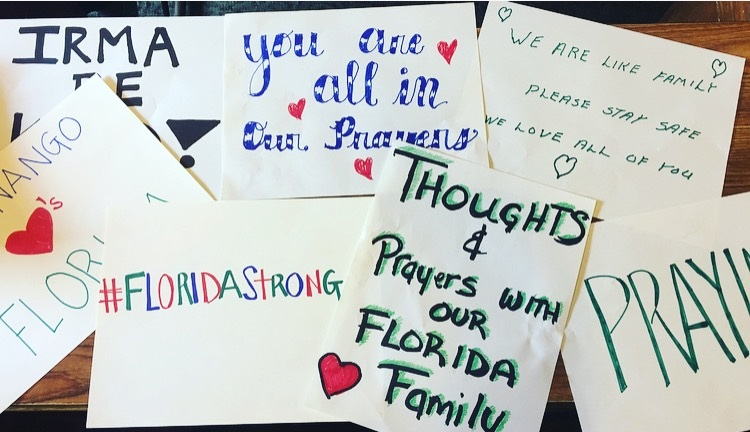 IRMA
BE
you are
all in
Our Prayers
WE ARE LIKE FAMILY
PLEASE STAY SAFE
WE LOVE ALL OF YOU
NANGO
's
FLORI
#FLORIDASTRONG
THOUGHTS
&
Prayers with
OUR
FLORIDA
Family
PRAYIN